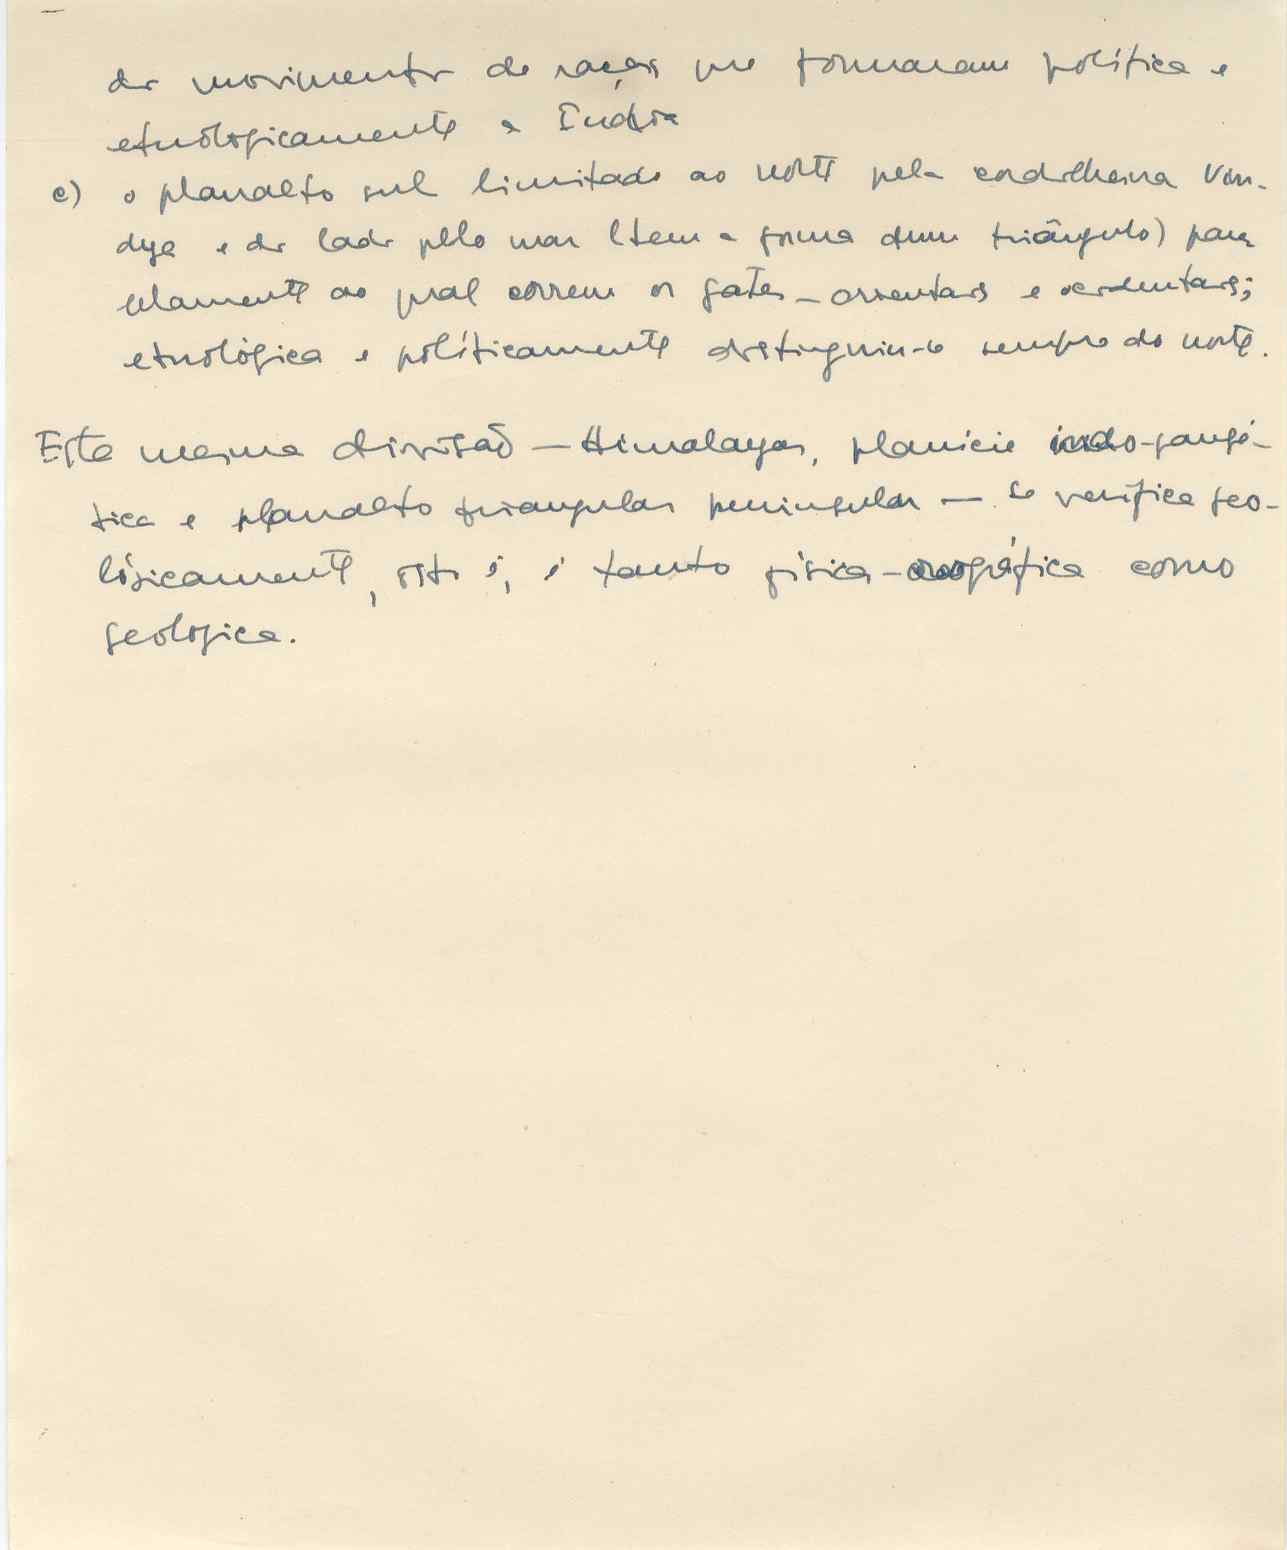 do movimento de raças que formaram política e
etnològicamente a Índia
c) o planalto sul limitado ao norte pela cordilheira Vin-
dya e do lado pelo mar (tem a forma dum triângulo) para
lelamente ao qual correm os gates - orientais e ocidentais;
etnológica e políticamente distinguiu-se sempre do norte.
Esta mesma divisão — Himalayas, planície indo-gangé-
tica e planalto triangular peninsular — se verifica geo-
lógicamente, isto é, é tanto física-orográfica como
geológica.